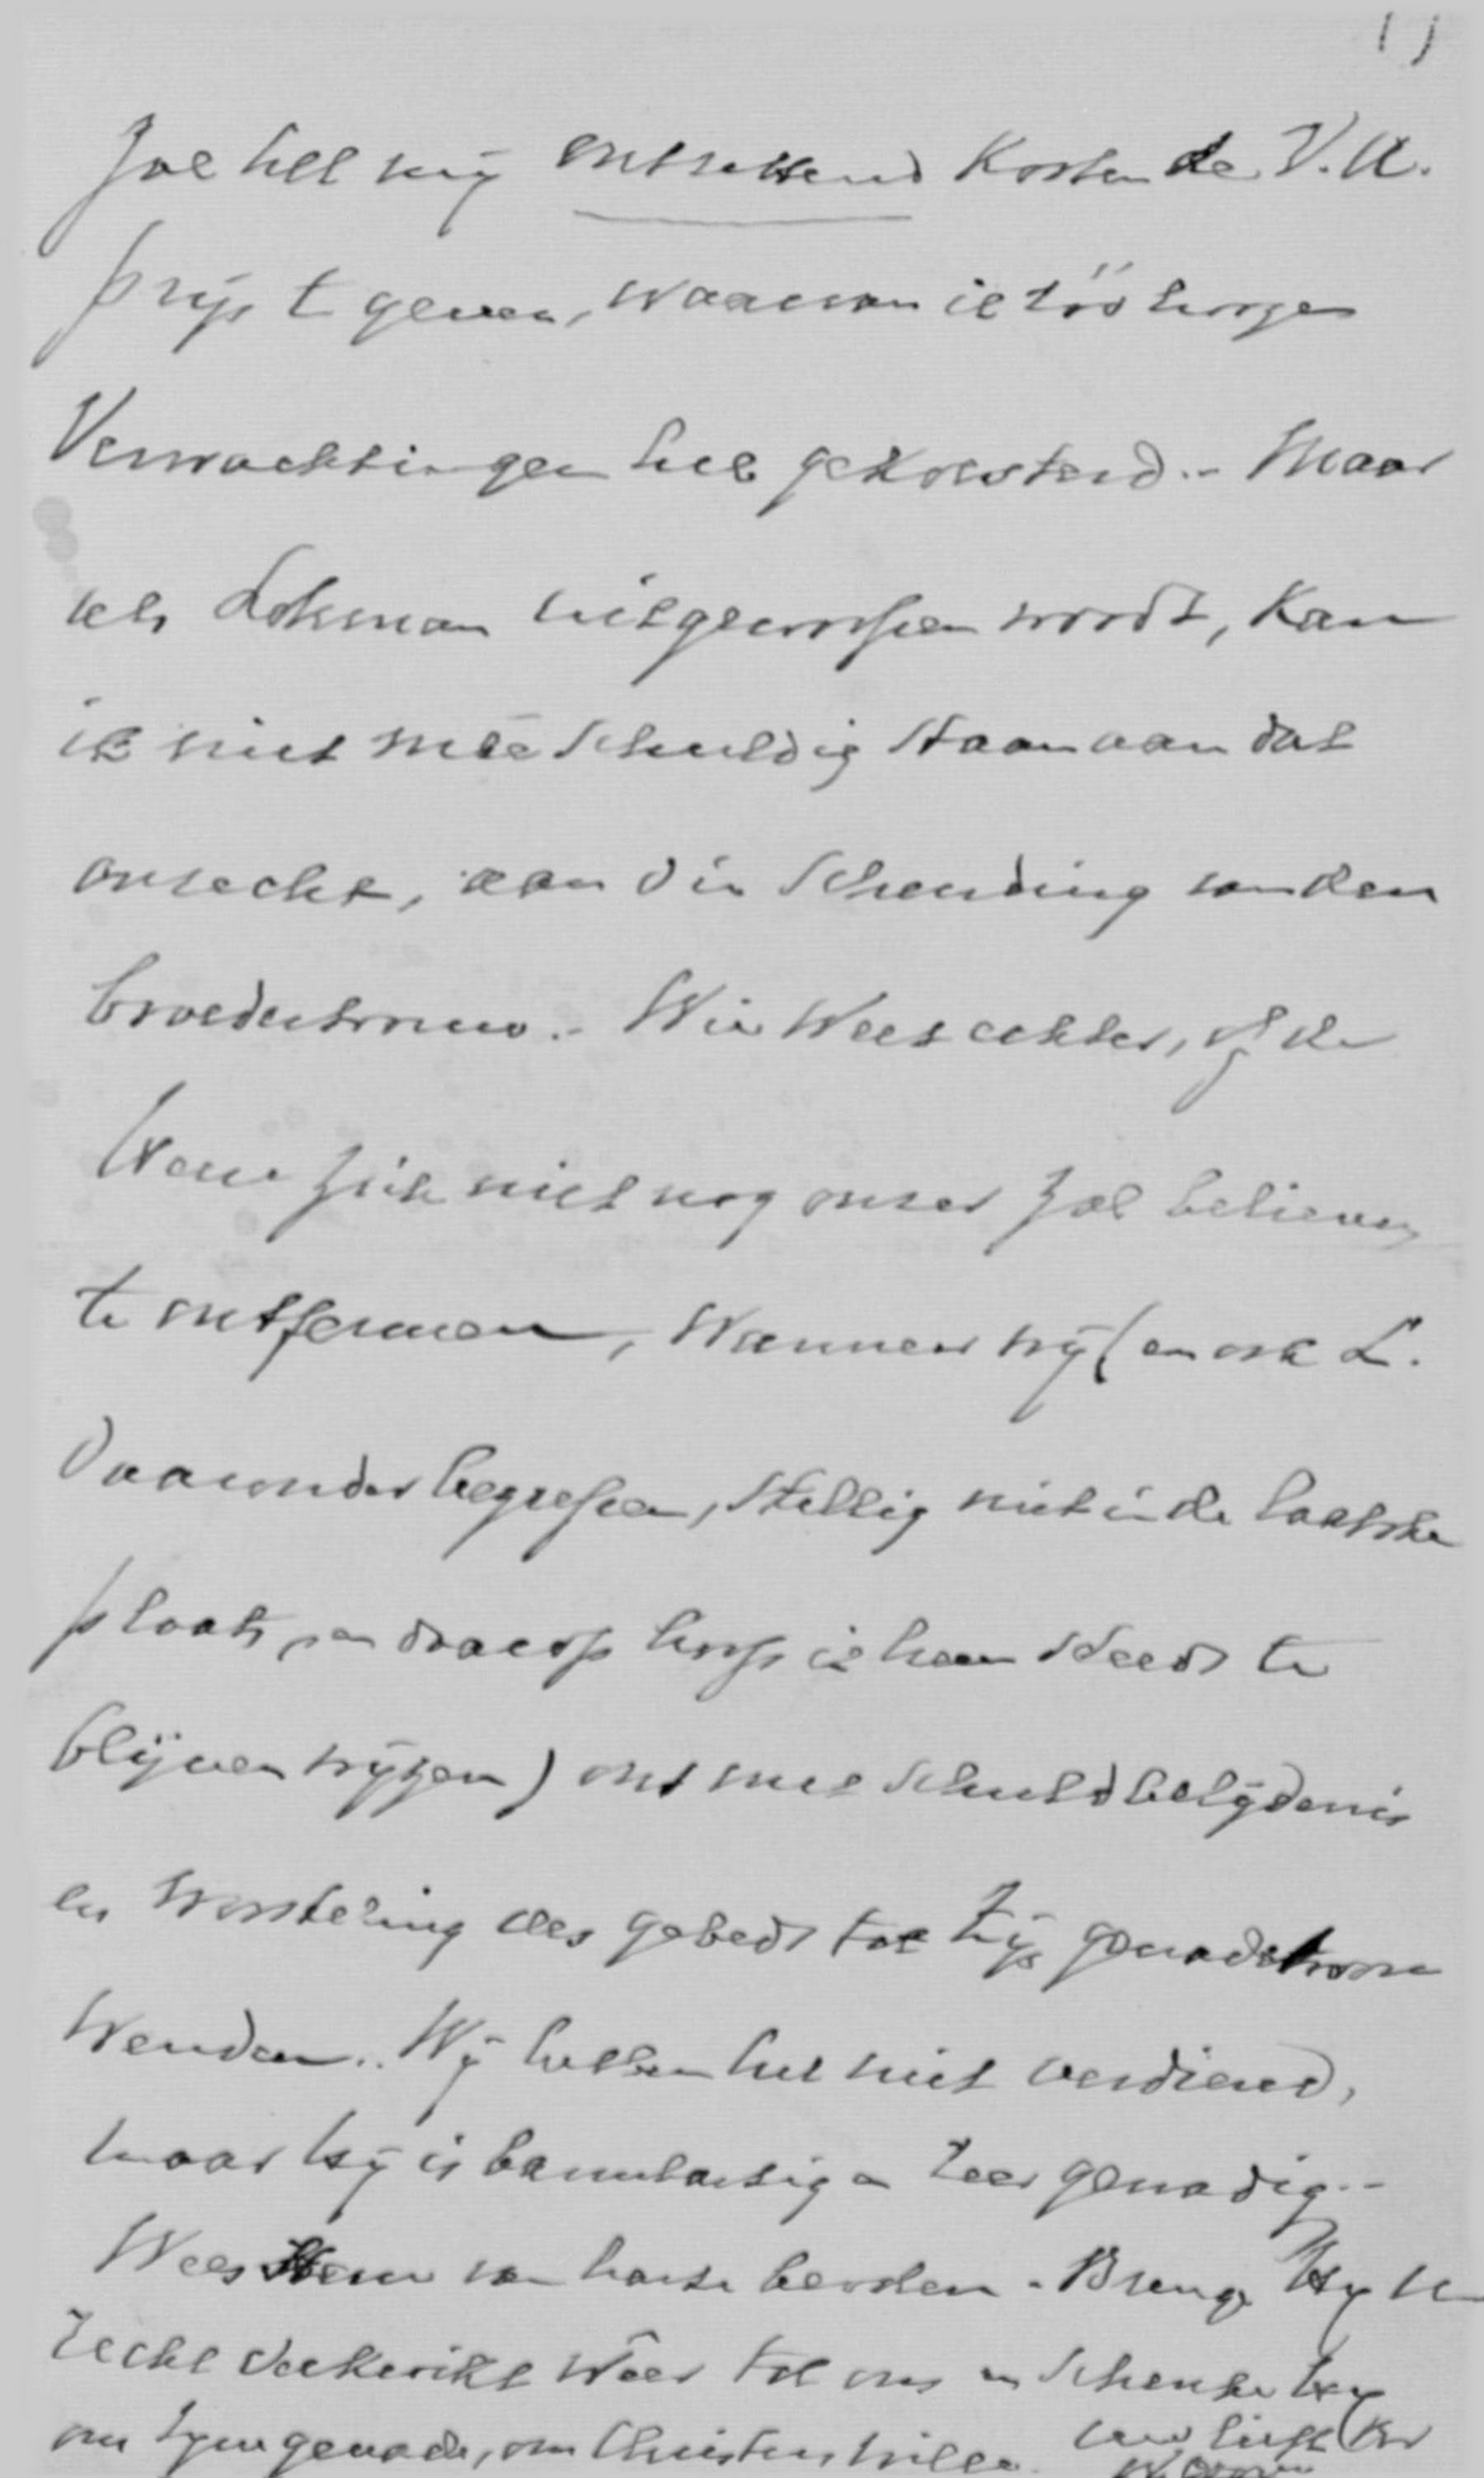 11
Zal het mij ontzettend kosten de V.U.
prijs te geven, waarvan ik zóó hooge
Verwachtingen heb gekoesterd.- Maar
als Lohman uitgeworpen wordt, kan
ik niet mede schuldig staan aan dat
onrecht, aan die schending van den
broedertrouw.- Wie weet echter, of de
Heere zich niet nog onzer zal believen
te ontfermen, wanneer wij (en ook L.
daaronder begrepen, stellig niet in de laatste
plaats, en daarop hoop ik hem steeds te
blijven wijzen) ons met schuldbelijdenis
en worsteling des gebeds tot Zijn genadetroon
wenden.. Wij hebben het niet verdiend,
maar Hij is barmhartig en zeer genadig.-
Wees Hem van harte bevolen. Brenge Hij U
recht verkwikt wêer tot ons en schenke Hij
ons Zijn genade, om Christus wille.
uw liefh. br